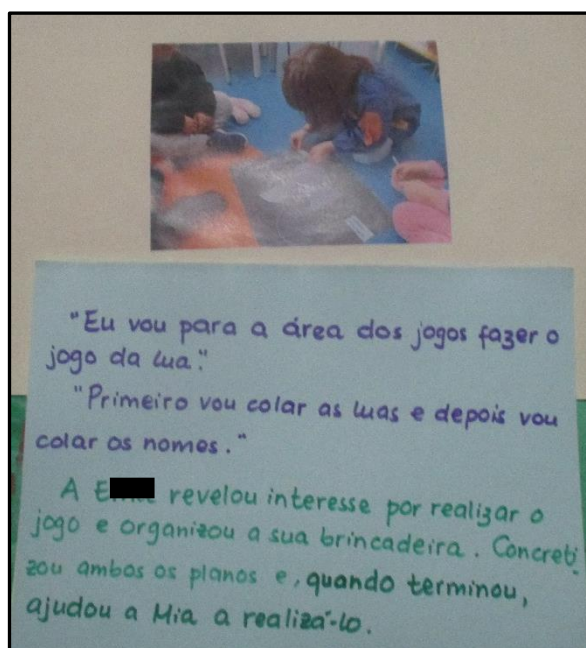 "Eu vou para a área dos jogos fazer o
jogo da lua."
"Primeiro vou colar as luas e depois vou
colar os nomes."
A revelou interesse por realizar o
jogo e organizou a sua brincadeira. Concreti
zou ambos os planos e, quando terminou,
ajudou a Mia a realizá-lo.